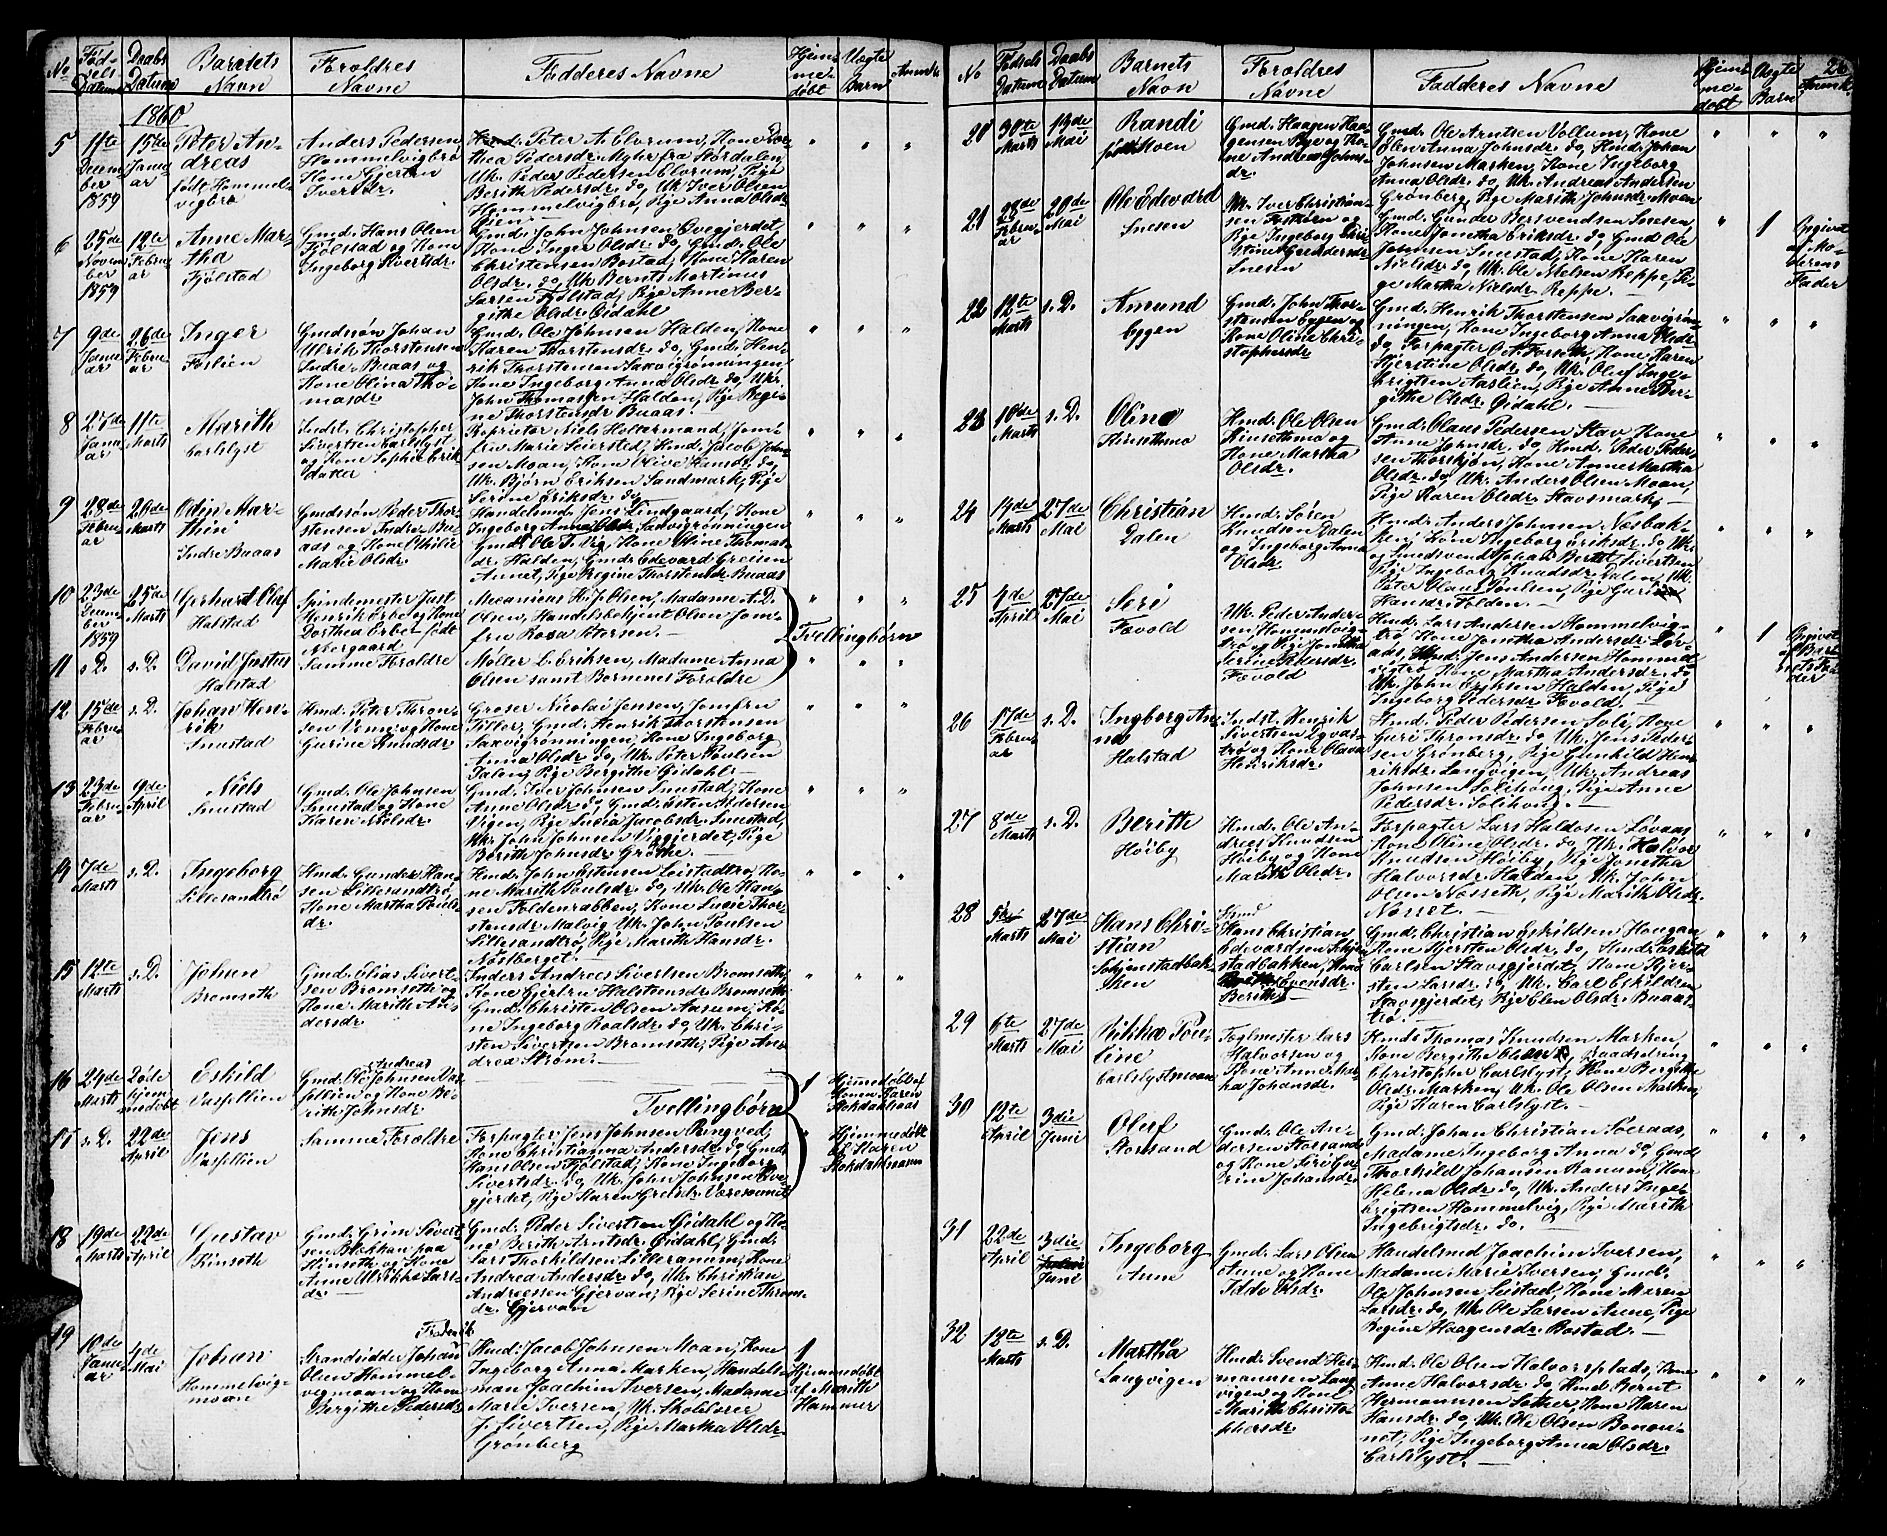 No Fødsels Datum Daabs Datum Barnets Navn Forældres Navne Fadderes Navne Hjemmedøbt Uægte Barn Anmk.
1860
5 11te December 1859 15de Januar Peter Andreas født Hommelvigbrø
Anders Pedersen
Hommelvigbrø
Kone Gjertru
Iversdr.
Hmd. Peter A. Elvrum, Kone Dor-
thea Pedersdr. Myhr fra Størdalen,
Uk. Peder Pedersen Elvrum, Pige
Berith Pedersdr. do, Uk. Iver Olsen
Hommelvigbrø, Pige Anna Olsdr.
6 25de November 1859 12te Februar Anne Martha Fjølstad
Gmd. Hans Olsen
Fjølstad og Kone
Ingeborg Sivertsdr.
Gmd. John Johnsen Evegjerdet,
Kone Inger Olsdr. do, Gmd. Ole
Christensen Bostad, Kone Karen
Olsdr. do, Uk. Bernt Martinus
Larsen Fjølstad, Pige Anne Ber-
githe Olsdr. Gidahl
7 9de Januar 26de Februar Inger Forlien
Gmdssøn Johan
Ulrik Thorstensen
Indre Buaas og
Kone Olina Tho-
masdr.
Gmd. Ole Johnsen Halden, Kone
Karen Thorstensdr. do, Gmd. Hen-
rik Thorstensen Saxvigrønningen
Kone Ingeborg Anna Olsdr. do, Uk.
John Thomassen Halden, Pige Regi-
ne Thorstensdr. Buaas.
8 27de Januar 11te Marts Marith Carlslyst
Indst. Christopher
Sivertsen Carlslyst
og Kone Sophie Erik-
datter
Proprietær Niels Holtermand, Jom-
fru Marie Seiersted, Hmd. Jacob John-
sen Moan, Kone Olive Hansdr. do,
Uk. Bjørn Eriksen Sandmark, Pige
Serine Eriksdr. do
9 28de Februar 20de Marts Odin Marthin Indre Buaas
Gmdssøn Peder Thor-
stensen Indre Bu-
aas og Kone Othilie
Marie Olsdr.
Handelsmd. Jens Lundgaard, Kone
Ingeborg Anna Olsdr. Saxvigrønningen
Gmd. Ole T. Vig, Kone Oline Thomas-
dr. Halden, Gmd. Edevard Greisen
Annet, Pige Regine Thorstensdr. Buaas
10 23de December 1859 25de Marts Gerhard Olaf Halstad
Spindemester Just
Henrik Erbe og Kone
Dorthea Erbe født
Nbergaard
Mecanicus H. J. Olsen, Madame A. D.
Olsen, Handelsbetjent Olsen Jom-
fru Rosa Petersen. —
Tvellingbørn
11 s. D. s. D. David Justus Halstad
Samme Forældre
Møller L. Eriksen, Madame Anna
Olsen samt Børnenes Forældre
12 15de Februar s. D. Johan Henrik Smestad
Hmd. Peter Thron-
sen Venn og Kone
Gurine Knudsdr.
Groser Nicolai Jensen, Jomfru
Tiller, Gmd. Henrik Thorstensen
Saxvigrønningen, Kone Ingeborg
Anna Olsdr. do, Uk. Peter Poulsen
Dalen, Pige Bergithe Gidahl. —
13 23de Februar 9de April Niels Smestad
Gmd. Ole Johnsen
Smestad og Kone
Karen Nielsdr.
Gmd. Iver Johnsen Smestad, Kone
Anne Olsdr. do, Gmd. Esten Pedersen
Vigen, Pige Lucia Jacobsdr. Smestad,
Uk. John Johnsen Viggjerdet, Pige
Berith Johnsdr. Grøthe. —
14 7de Marts s. D. Ingeborg Lillesandtrø
Hmd. Gunder Han-
sen Lillesandtrø,
Kone Martha Pouls-
dr.
Hmd. John Estensen Leistadtrø, Ko-
ne Marith Paulsdr. do, Uk. Ole Han-
sen Foldenrabben, Kone Lucie Thor-
stensdr. Malvig, Uk. John Poulsen
Lillesandtrø, Pige Marith Hansdr.
Nostberget. —
15 12te Marts s. D. Johan Bromseth
Gmd. Elias Sivert-
sen Bromseth og
Kone Marith An-
dersdr.
Anders Andreas Sivertsen Bromseth,
Kone Gjertru Halstensdr. Bromseth
Gmd. Christen Olsen Aasum, Ko-
ne Ingeborg Roalsdr. do, Uk. Chri-
sten Sivertsen Bromseth, Pige An-
drea Strøm. —
16 24de Marts 20de hjemmedøbt Eskild Vasfellien
Andreas
Gmd. Ole Johnsen Vas-
fellien og Kone Be-
rith Johnsdr.
Tvellingbørn
1 Hjemmedøbt af
Konen Karen
Stokdahlaas
17 s. D. 22de April Jens Vasfellien
Samme Forældre
Forpagter Jens Johnsen Ringved,
Kone Christianna Andersdr. do, Gmd.
Hans Olsen Fjølstad, Kone Ingeborg
Sivertsdr. do, Uk. John Johnsen Eve-
gjerdet, Pige Karen Greisdr. Væresannet
Hjemmedøbt
af Karen
Stokdahlaasen
18 19de Marts 22de April Gustav Kinseth
Gmd. Grim Sivert-
sen Blekkan paa
Kinseth og Kone
Anne Ulrikke Lars-
dr.
Gmd. Peder Sivertsen Gidahl og Ko-
ne Berith Arntsdr. Gidahl, Gmd.
Lars Thorkildsen Lilleranum, Kone
Andrea Andersdr. do, Uk. Christian
Andreassen Gjervan, Pige Serine Thron-
dr. Gjervan
19 10de Januar 4de Mai Johan Hommelvigmoan
Frederik
Strandsidder Johan
Olsen Hommel-
vigmoan og Kone
Bergithe Pedersdr.
Hmd. Jacob Johnsen Moan, Kone
Ingeborg Anna Marken, Handels-
man Joachim Iversen, Madame
Marie Iversen, Uk. Skolelærer
J. Sivertsen, Pige Martha Olsdr.
Grønberg
1
Hjemmedøbt
af Marith
Hammer
26
No Fødsels Datum Daabs Datum Barnets Navn Forældres Navne Fadderes Navne Hjemmedøbt Uægte Barn Anmk.
20 30te Marts 19de Mai Randi født Moen
Gmd. Haagen Haa-
gensen Bye og Ko-
ne Andrea Johns-
dr.
Gmd. Ole Arntsen Vollum, Kone
Elen Anna Johnsdr. do, Hmd. Johan
Johnsen Marken, Kone Ingeborg
Anna Olsdr. do, Uk. Andreas Andersen
Grønberg, Pige Marith Johnsdr. Moen
21 28de Februar 20de Mai Ole Edevard Snesen
Uk. Iver Christian-
sen Foskoien og
Pige Ingeborg Chri-
stine Gundersdr.
Snesen
Gmd. Gunder Bersvendsen Snesen,
Kone Jonetha Eriksdr. do, Gmd. Ole
Johnsen Smestad, Kone Karen
Nielsdr. do, Uk. Ole Nielsen Reppe, Pi-
ge Martha Nielsdr. Reppe. —
1 Opgivet
af Mo-
derens
Fader
22 12te Marts s. D. Amund Eggen
Gmd. John Thor-
stensen Eggen og
Kone Oline Chri-
stophersdr.
Gmd. Henrik Thorstensen Saxvigrøn-
ningen, Kone Ingeborg Anna Olsdr.
do, Forpagter O. t. Forseth, Kone Karen
Kjerstine Olsdr. do, Uk. Oluf Inge-
brigtsen Aaslien, Pige Anne Ber-
githe Olsdr. Gidahl. —
23 10de Marts s. D. Oline Kinsethmo
Hmd. Ole Olsen
Kinsethmo og
Kone Martha
Olsdr.
Gmd. Claus Pedersen Stav, Kone
Anne Johnsdr. do, Hmd. Peder Peder-
sen Thorskjøn, Kone Anne Martha
Olsdr. do, Uk. Anders Olsen Moan,
Pige Karen Olsdr. Stavsmark. —
24 19de Marts 27de Mai Christian Dalen
Hmd. Søren
Knudsen Dalen
og Ingeborg Anna
Olsdr.
Hmd. Anders Johnsen Næsbak-
ken, Kone Ingeborg Eriksdr. do, Uk.
og Smedsvend Johan Berntet Sivertsen
Pige Ingeborg Knudsdr. Dalen, Uk.
Peter Olaus Poulsen, Pige Guri
Hansdr. Folden. —
25 4de April 27de Mai Siri Fævold
Uk. Peder Ander-
sen Hommelvig-
trø og Pige Jonetha
Serine Pedersdr.
Fævold
Hmd. Lars Andersen Hommelvig-
trø, Kone Jonetha Andersdr. Løv-
aas, Hmd. Jens Andersen Hommel-
vigtrø, Kone Martha Andersdr. do
Uk. John Eriksen Halden, Pige
Ingeborg Pedersdr. Fævold.
1 Opgivet
af Bar-
nets Fa-
der
26 17de Februar s. D. Ingborg Anna Halstad
Indst. Henrik
Sivertsen Egvas-
trø og Kone Olava
Hendriksdr.
Hmd. Peder Pedersen Solie, Kone
Guri Thronsdr. do, Uk. Jens Peder-
sen Grønberg, Pige Gunhild Hen-
riksdr. Langvigen, Uk. Andreas
Johnsen Solihoug, Pige Anne
Pedersdr. Solihoug. —
27 8de Marts s. D. Berith Høiby
Hmd. Ole An-
dreas Knudsen
Høiby og Kone
Marith Olsdr.
Forpagter Lars Haldosen Løvaas
Kone Oline Olsdr. do, Uk. Halvor
Knudsen Høiby, Pige Jonetha
Halvorsdr. Halden, Uk. John
Olsen Nosseth, Pige Marith Olsdr.
Nosset. —
28 5te Marts 27de Mai Hans Christian Schjenstadbakken
Hmd.
Hans Christian
Edevardsen Schjen-
stadbakken, Kone
Berith Evensdr.
Gmd. Christian Eskildsen Hougan
Kone Kjersten Olsdr. do, Hmd. Eskild
Carlsen Stavsgjerdet, Kone Kjer-
sten Larsdr. do, Uk. Carl Eskildsen
Stavsgjerdet, Pige Elen Olsdr. Buaas-
trø. —
29 6te Marts 27de Mai Rikka Pouline Carlslystmoan
Teglmester Lars
Halvorsen og
Kone Anne Mar-
tha Johansdr.
Hmd. Thomas Knudsen Marken,
Kone Bergithe Olsen, Baadseldreng
Christopher Carlslyst, Kone Bergithe
Olsdr. Marken, Uk. Ole Olsen Marken,
Pige Karen Carlslyst. —
30 12te April 3die Juni Oluf Storsand
Gmd. Ole An-
dersen Storsand
og Kone Siri Gu-
rine Johansdr.
Gmd. Johan Christian Solraas,
Madame Ingeborg Anna do, Gmd.
Thorkild Johansen Ranum, Kone
Helena Olsdr. do, Uk. Anders Inge-
brigtsen Hommelvig, Pige Marith
Ingebrigtsdr. do. —
31 22de April 3die Juni Ingeborg Anne
Gmd. Lars Olsen
Anne og Kone
Idde Olsdr.
Handelsmd. Joachim Iversen,
Madame Marie Iversen, Gmd.
Ole Johnsen Leistad, Kone Maren
Larsdr. do, Uk. Ole Larsen Anne, Pige
Regine Haagensdr. Bostad. —
32 12te Marts s. D. Martha Langvigen
Hmd. Svend Her-
manusen Lang-
vigen og Kone
Marith Christo-
phersdr.
Hmd. Ole Olsen Halvorsplads, Kone
Anne Halvorsdr. do, Hmd. Bernt
Hermannsen Sæther, Kone Karen
Hansdr. do, Uk. Ole Olsen Bonøu-
net, Pige Ingeborg Anna Olsdr.
Carlslyst. —